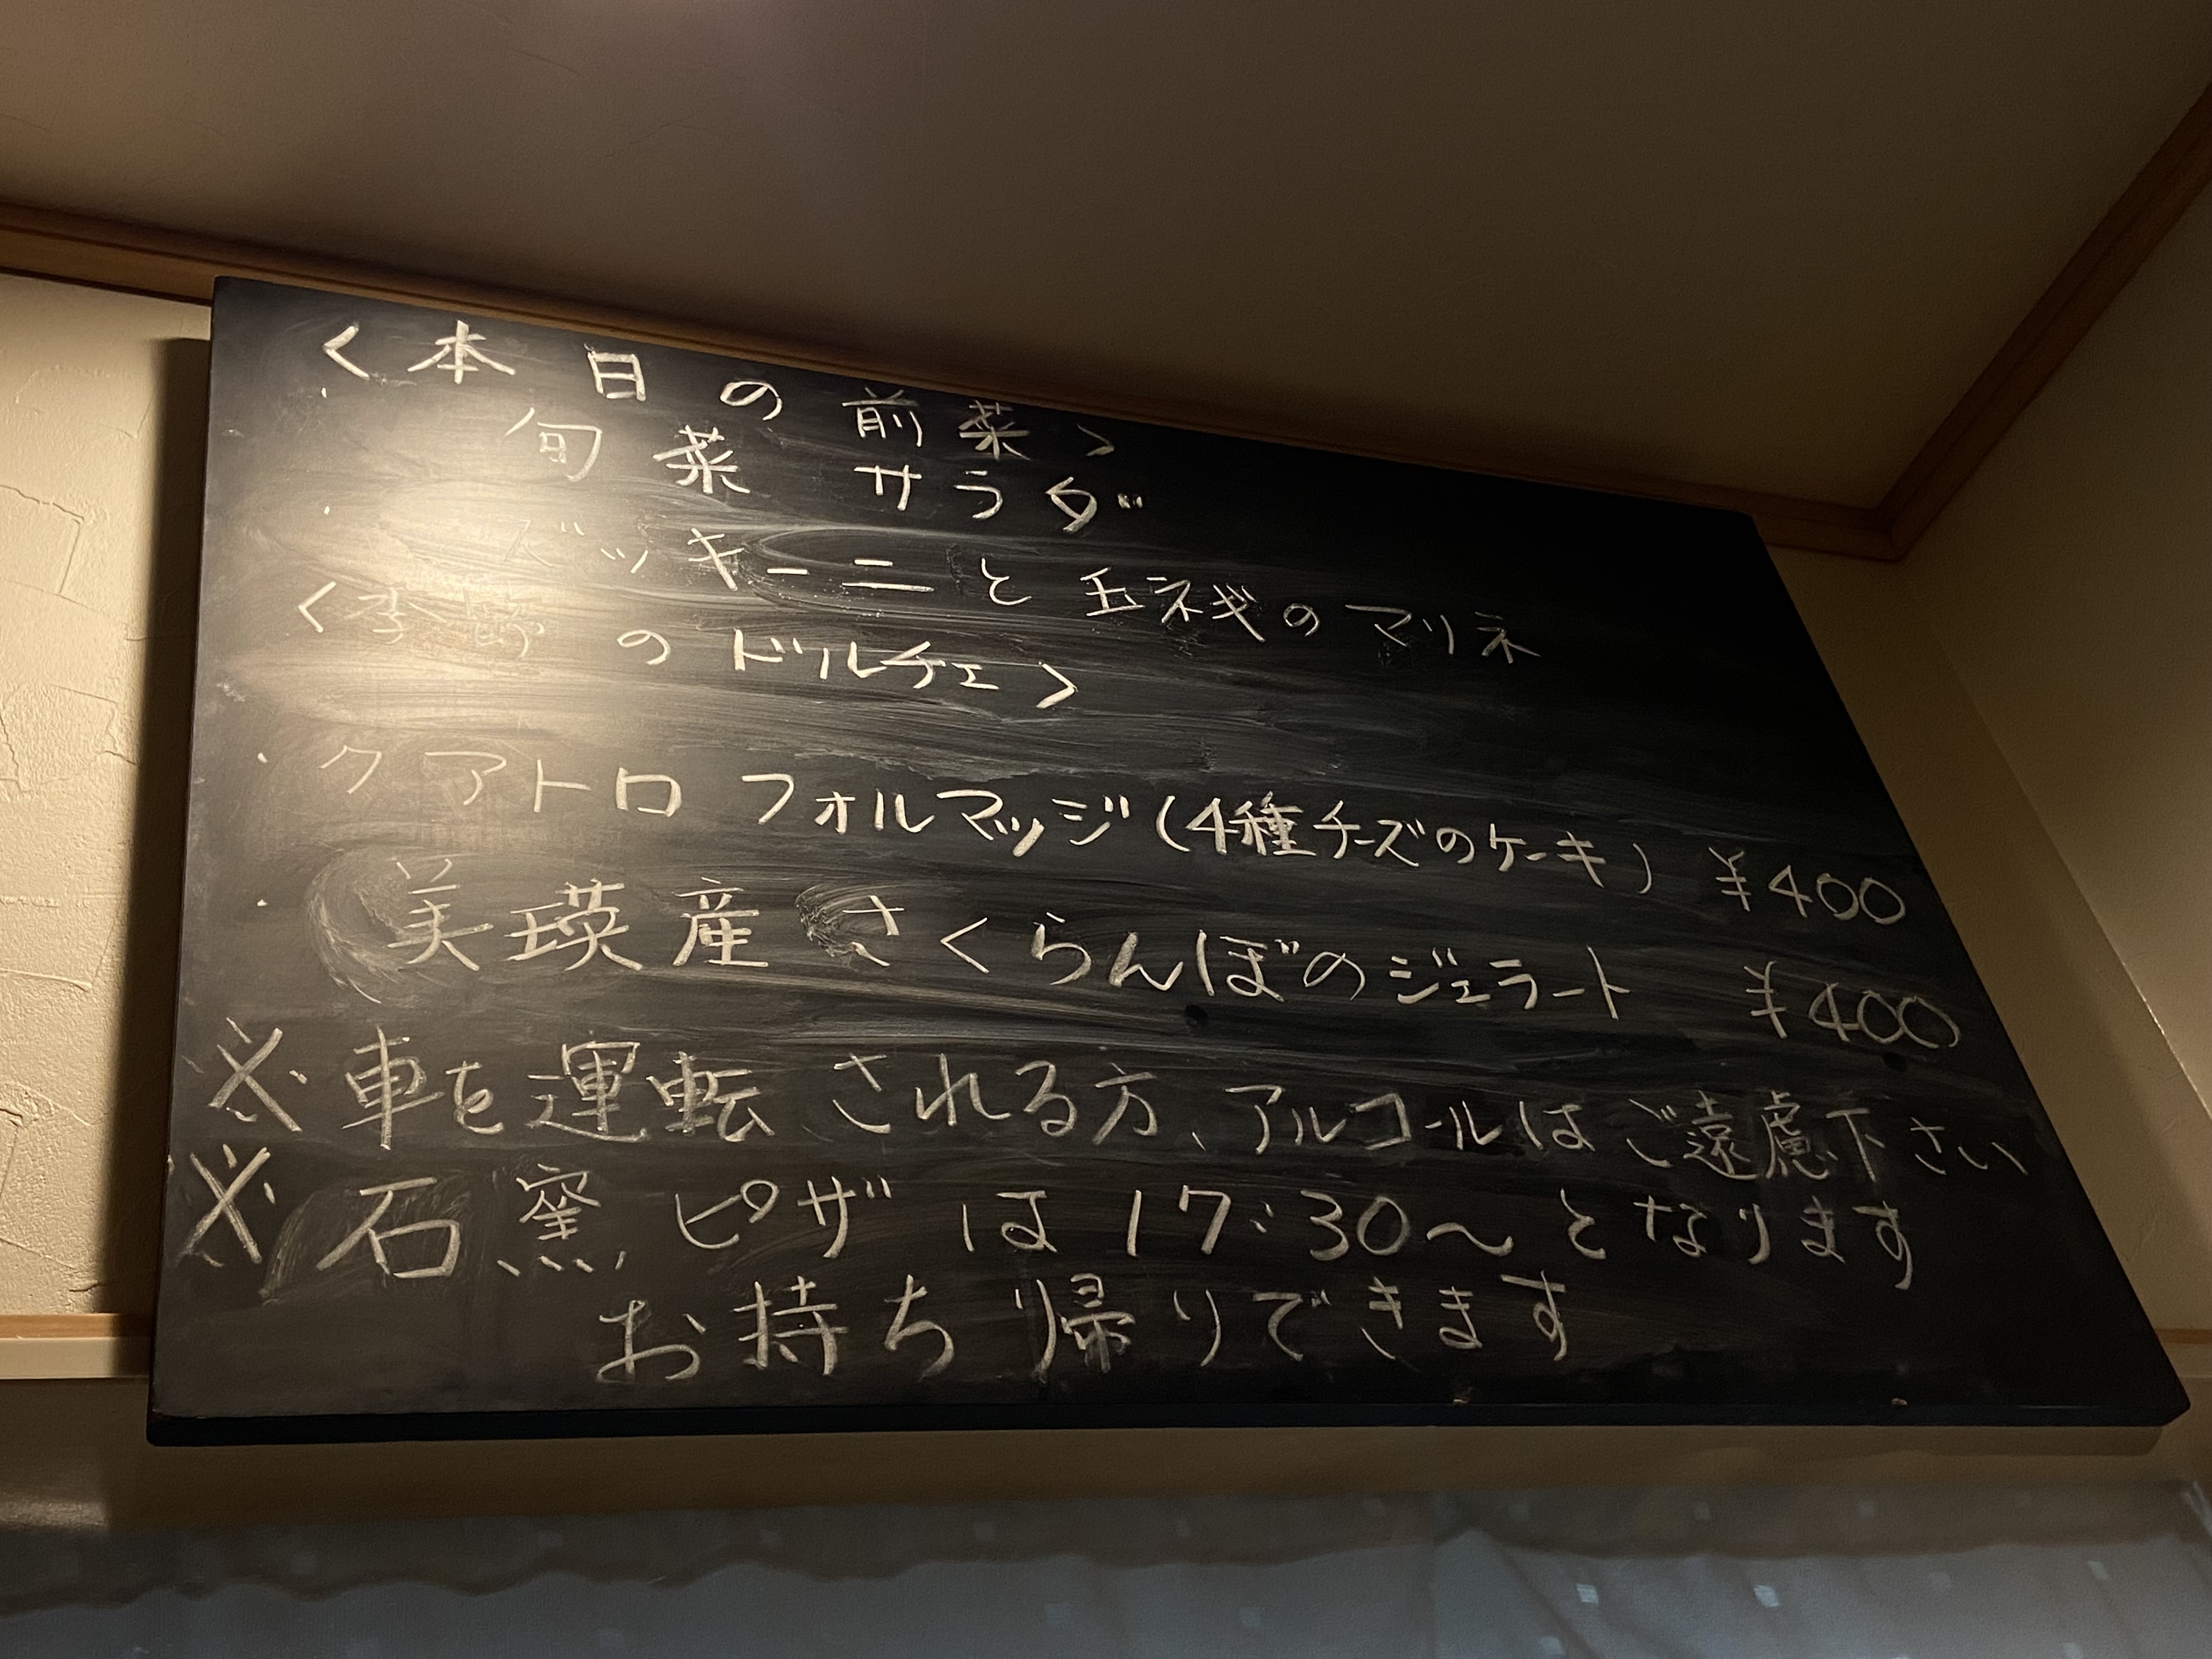 <本日の前菜>
・旬菜 サラダ
・ズッキーニと玉ネギのマリネ
<季節のドルチェ>
・クアトロ フォルマッジ(4種チーズのケーキ) ¥400
・美瑛産 さくらんぼのジェラート ¥400
※車を運転される方、アルコールはご遠慮下さい
※石窯ピザは17:30〜となります
お持ち帰りできます